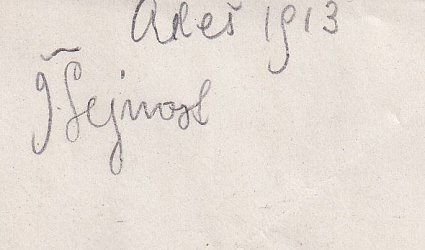 Adeš 1913
J. Šejnost